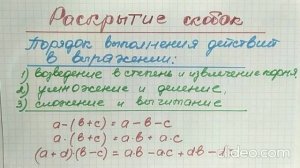 Раскрытие скобок
Порядок выполнения действий
в выражении:
1) возведение в степень и извлечение корня
2) умножение и деление,
3) сложение и вычитание
a-(b+c)=a-b-c
a·(b+c)=a·b+a·c
(a+d)·(b-c)=a·b-ac+db-dc